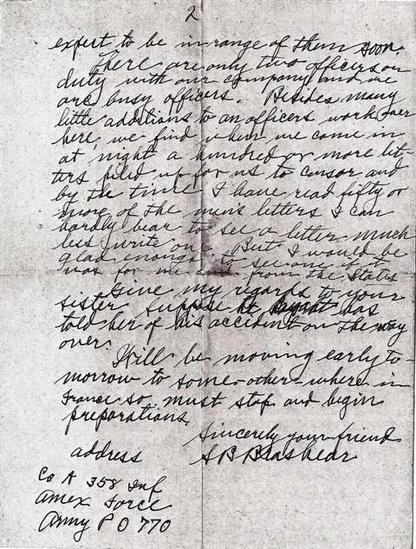 2
expect to be in range of them soon.
There are only two officers on
duty with our company and we
are busy officers. Besides many
little additions to an officers work over
here, we find when we come in
at night a hundred or more let-
ters piled up for us to censor and
by the time I have read fifty or
more of the men's letters I can
hardly bear to see a letter much
less write one. But I would be
glad enough to see one if it
was for me and from the States
Give my regards to your
sister. Suppose he has
told her of his accident on the way
over.
Will be moving early to-
morrow to some-other-where in
France so must stop and begin
preparations.
Sincerely your friend
S B Brashear
address
Co A 358 Inf
Amex Force
Army P O 770